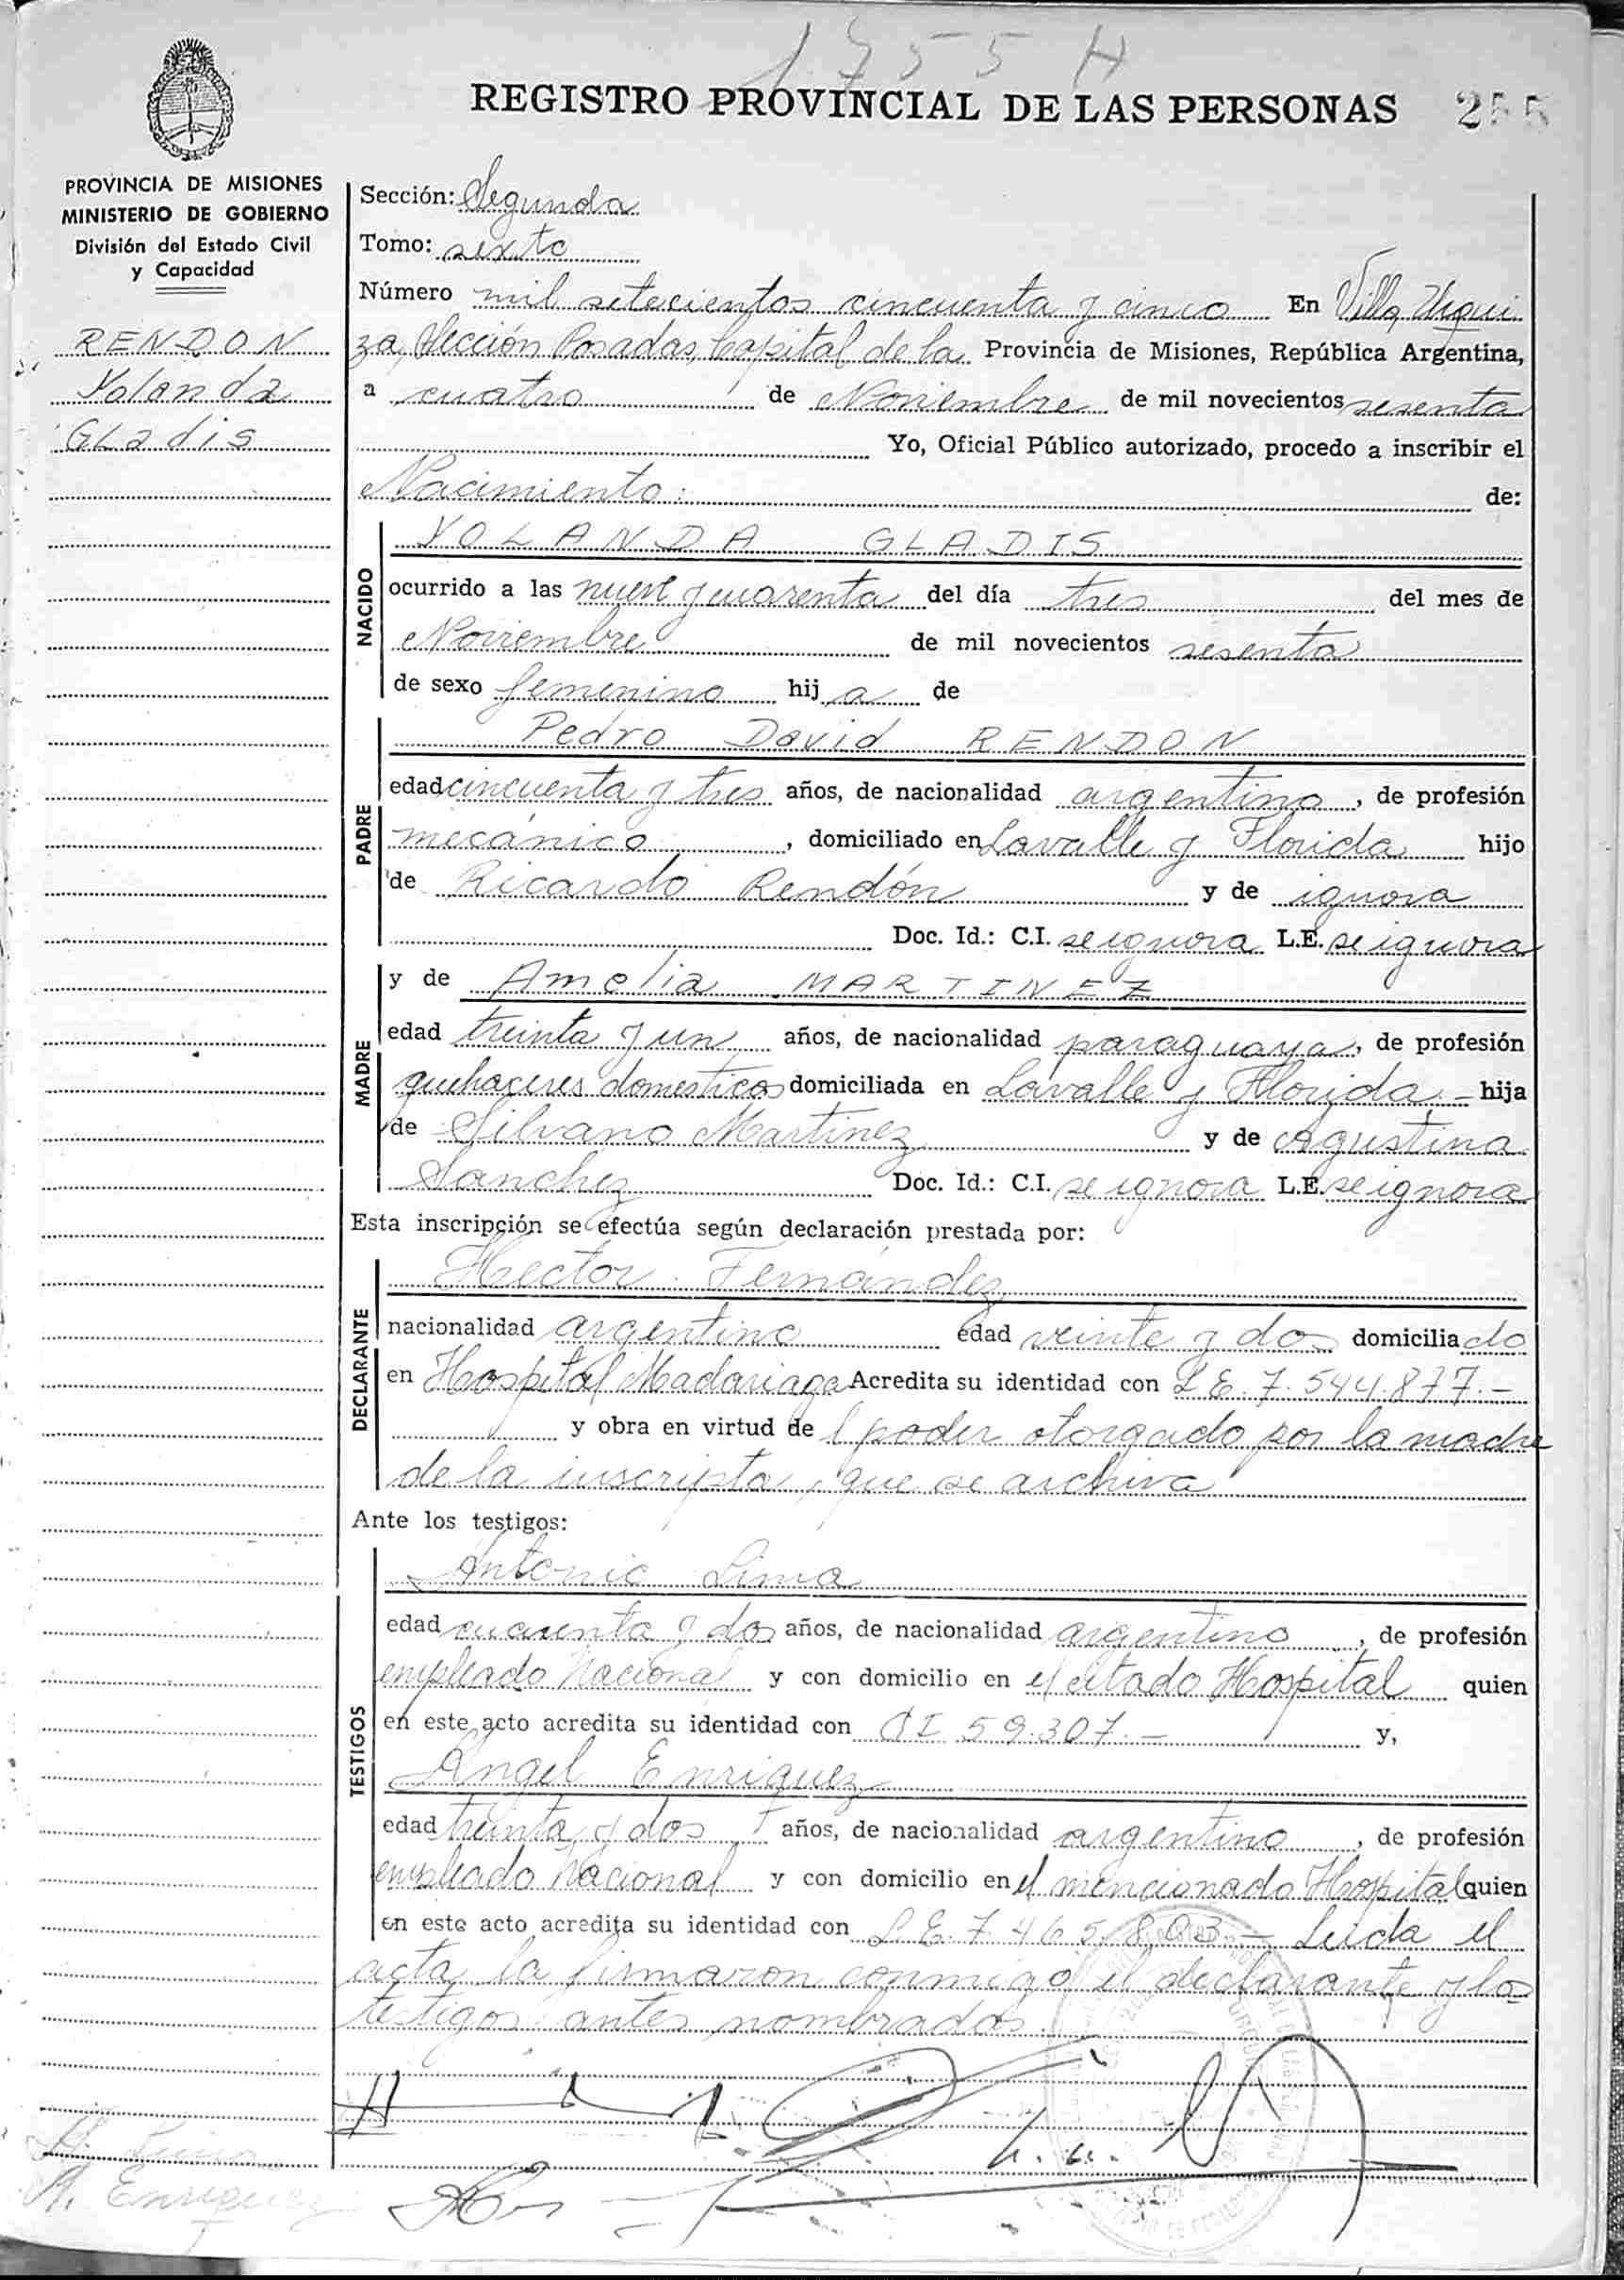 1755 H
REGISTRO PROVINCIAL DE LAS PERSONAS 255
PROVINCIA DE MISIONES
MINISTERIO DE GOBIERNO
División del Estado Civil
y Capacidad
RENDON
Yolanda
GLadis
Sección: Segunda
Tomo: sexto
Número mil setecientos cincuenta y cinco En Villa Urqui
za, Sección Posadas, Capital de la Provincia de Misiones, República Argentina,
a cuatro de Noviembre de mil novecientos sesenta
Yo, Oficial Público autorizado, procedo a inscribir el
Nacimiento: de:
NACIDO
YOLANDA GLADIS
ocurrido a las nueve y cuarenta del día tres del mes de
Noviembre de mil novecientos sesenta
de sexo femenino hij a de
PADRE
Pedro David RENDON
edad cincuenta y tres años, de nacionalidad argentino, de profesión
mecánico, domiciliado en Lavalle y Florida hijo
de Ricardo Rendón y de ignora
Doc. Id.: C.I. se ignora L.E. se ignora
MADRE
y de Amelia MARTINEZ
edad treinta y un años, de nacionalidad paraguaya, de profesión
quehaceres domesticos domiciliada en Lavalle y Florida,- hija
de Silvano Martinez y de Agustina
Sanchez Doc. Id.: C.I. se ignora L.E. se ignora
Esta inscripción se efectúa según declaración prestada por:
DECLARANTE
Hector Fernández
nacionalidad argentino edad veinte y dos domiciliado
en Hospital Madariaga Acredita su identidad con L E. 7.544.877.-
y obra en virtud de l poder otorgado por la madre
de la inscripta, que se archiva
Ante los testigos:
TESTIGOS
Antonio Lima
edad cuarenta y dos años, de nacionalidad argentino, de profesión
empleado Nacional y con domicilio en el citado Hospital quien
en este acto acredita su identidad con CI 59.307.- y,
Angel Enriquez
edad treinta y dos años, de nacionalidad argentino, de profesión
empleado Nacional y con domicilio en el mencionado Hospital quien
en este acto acredita su identidad con L E. 7.465.803.- Leida el
acta, la firmaron conmigo el declarante y los
testigos antes nombrados.
A. Lima
A. Enriquez